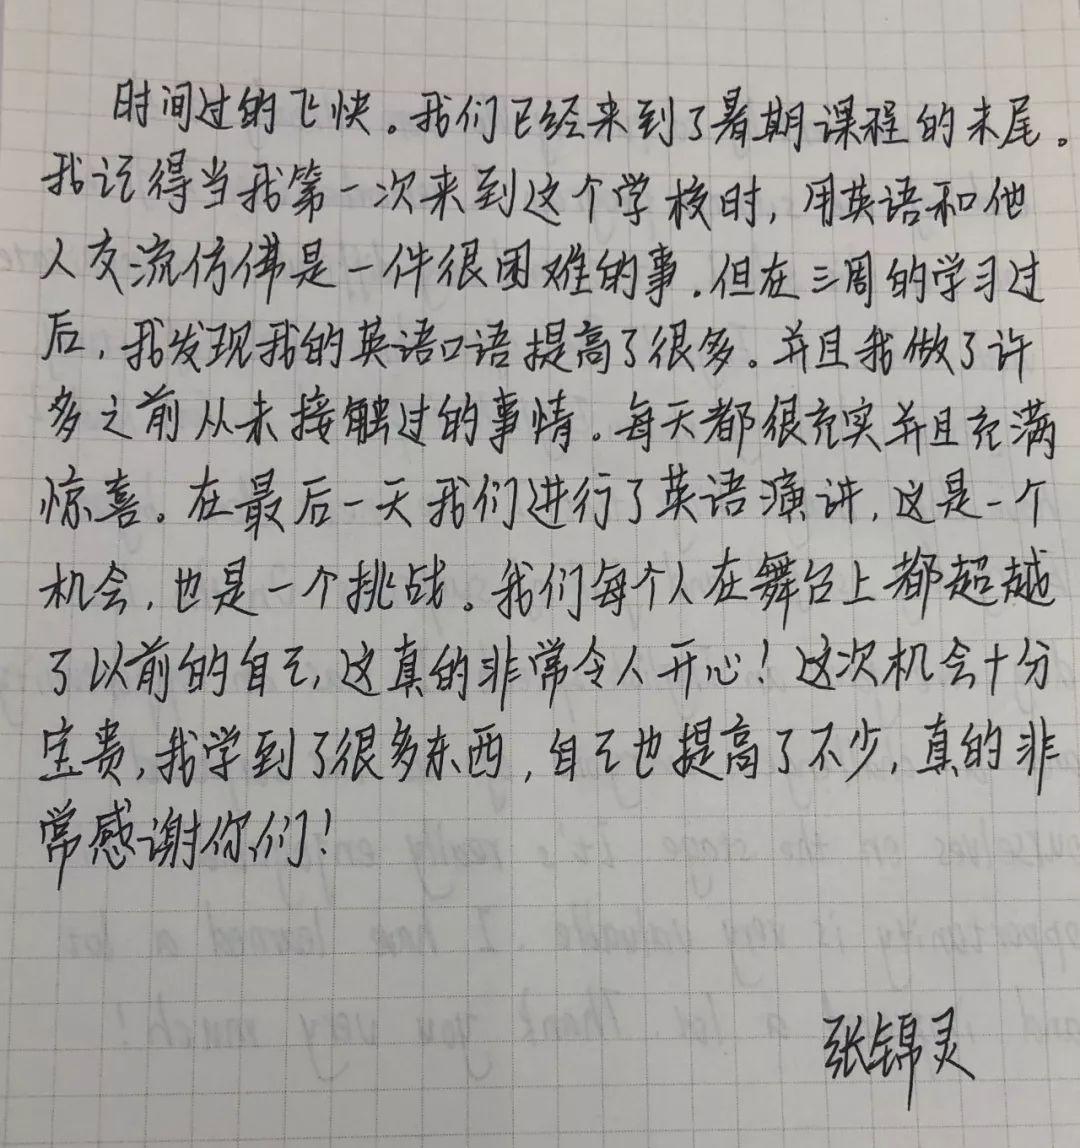 时间过的飞快。我们已经来到了暑期课程的末尾。
我记得当我第一次来到这个学校时，用英语和他
人交流仿佛是一件很困难的事.但在三周的学习过
后，我发现我的英语口语提高了很多。并且我做了许
多之前从未接触过的事情。每天都很充实并且充满
惊喜。在最后一天我们进行了英语演讲，这是一个
机会，也是一个挑战。我们每个人在舞台上都超越
了以前的自己，这真的非常令人开心！这次机会十分
宝贵，我学到了很多东西，自己也提高了不少，真的非
常感谢你们！
ourselves on the stage. It's really
opportunity is very valuable. I have learned a lot
and a lot. Thank you very much!
张锦灵